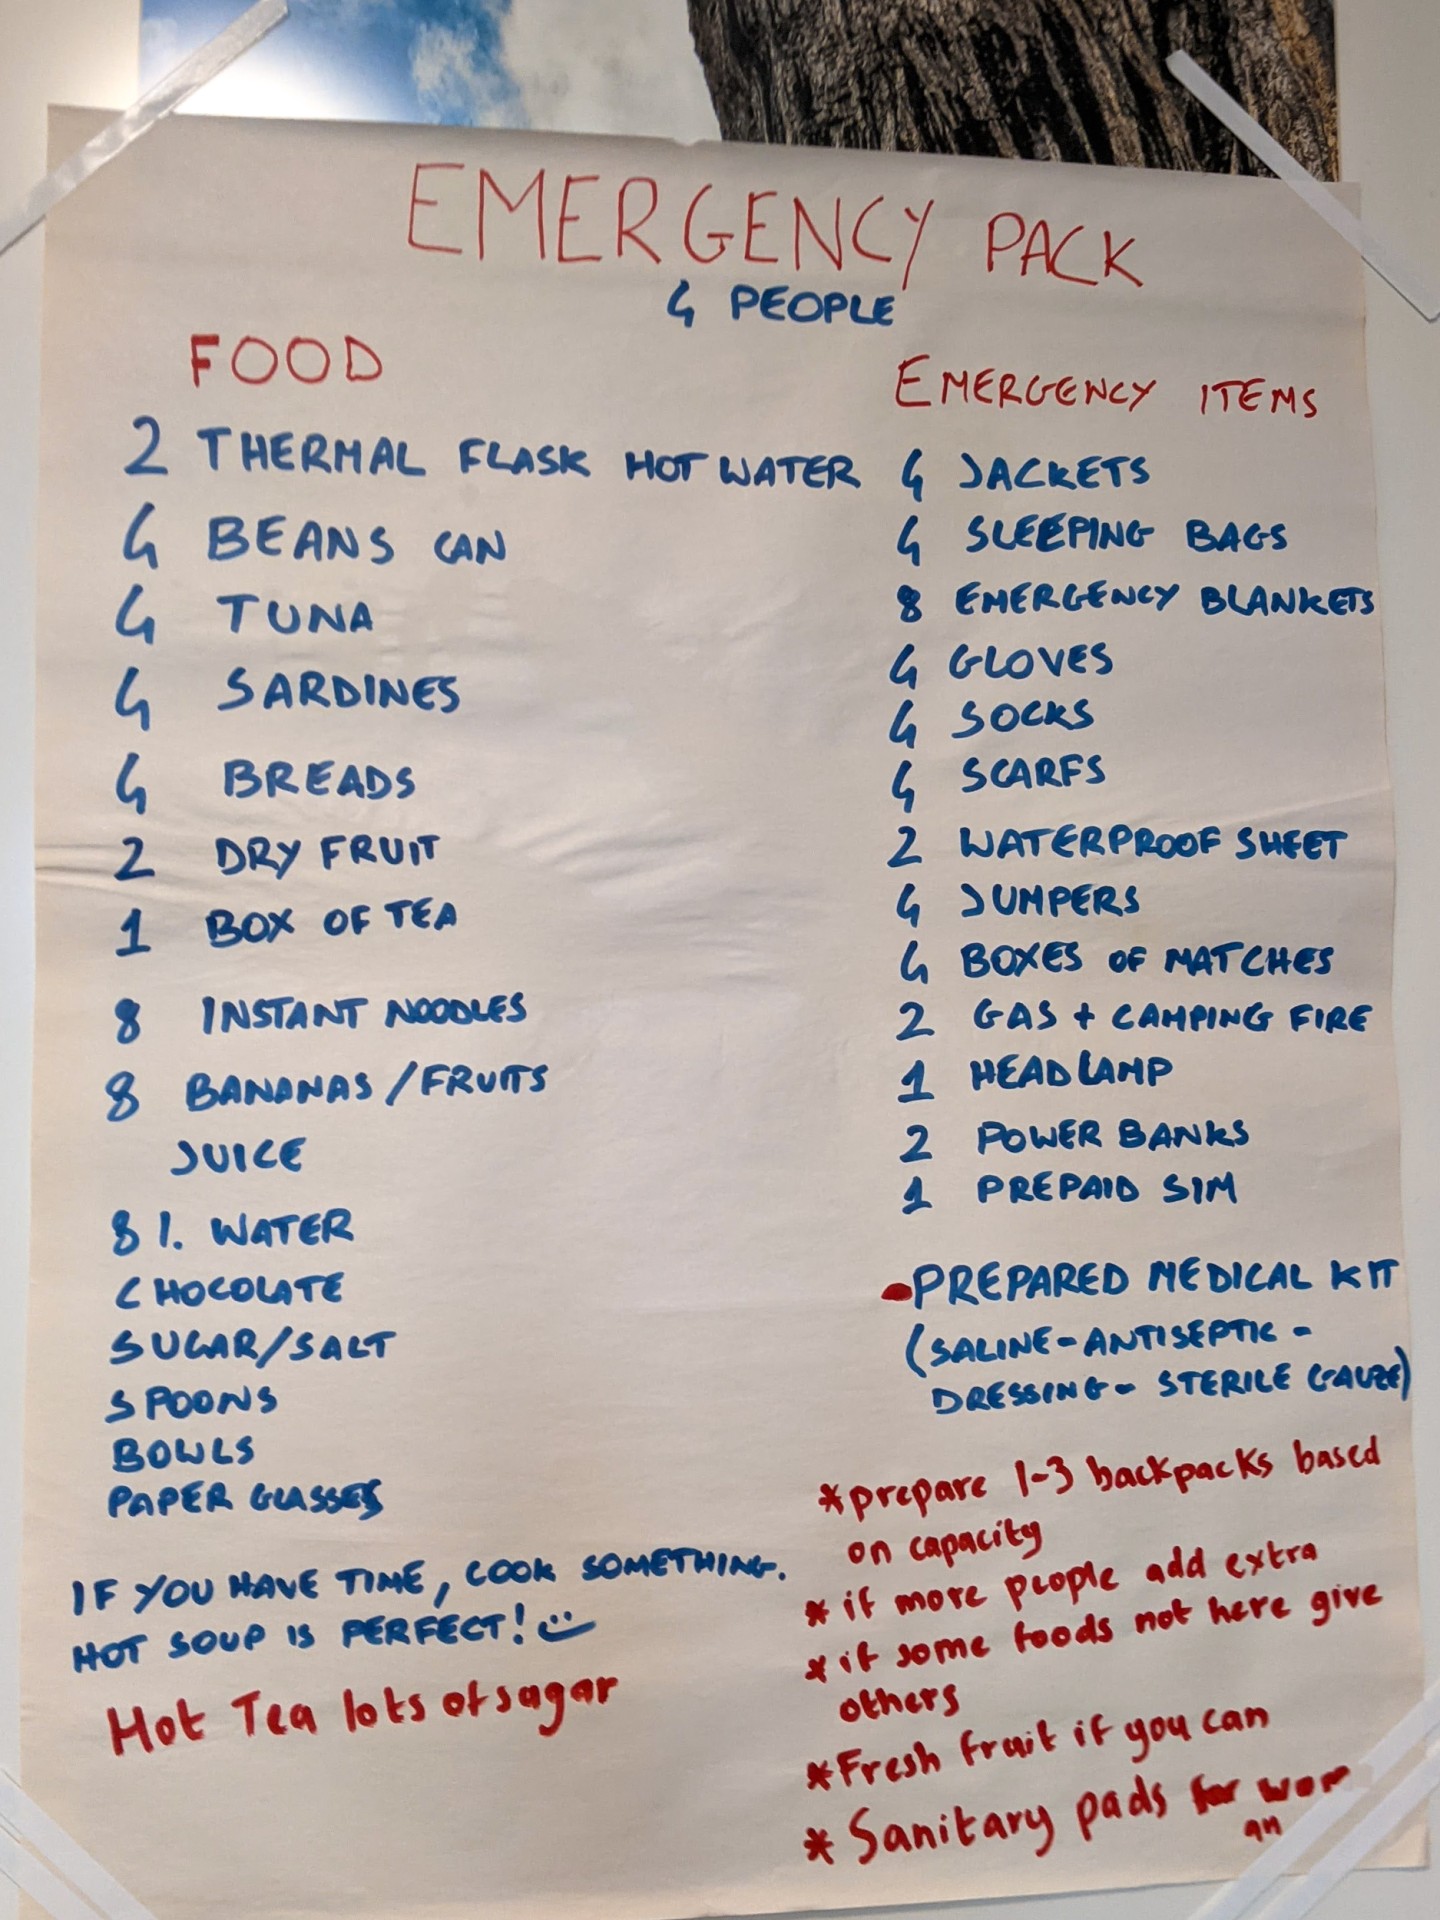 EMERGENCY PACK
4 PEOPLE
FOOD
2 THERMAL FLASK HOT WATER
4 BEANS CAN
4 TUNA
4 SARDINES
4 BREADS
2 DRY FRUIT
1 BOX OF TEA
8 INSTANT NOODLES
8 BANANAS/FRUITS
JUICE
8 l. WATER
CHOCOLATE
SUGAR/SALT
SPOONS
BOWLS
PAPER GLASSES
IF YOU HAVE TIME, COOK SOMETHING.
HOT SOUP IS PERFECT!
Hot Tea lots of sagar
EMERGENCY ITEMS
4 JACKETS
4 SLEEPING BAGS
8 EMERGENCY BLANKETS
4 GLOVES
4 SOCKS
4 SCARFS
2 WATERPROOF SHEET
4 JUMPERS
4 BOXES OF MATCHES
2 GAS + CAMPING FIRE
1 HEADLAMP
2 POWER BANKS
1 PREPAID SIM
PREPARED MEDICAL KIT
(SALINE-ANTISEPTIC-
DRESSING- STERILE GAUZE)
*prepare 1-3 backpacks based
on capacity
* if more people add extra
* if some foods not here give
others
*Fresh fruit if you can
* Sanitary pads for wom
an